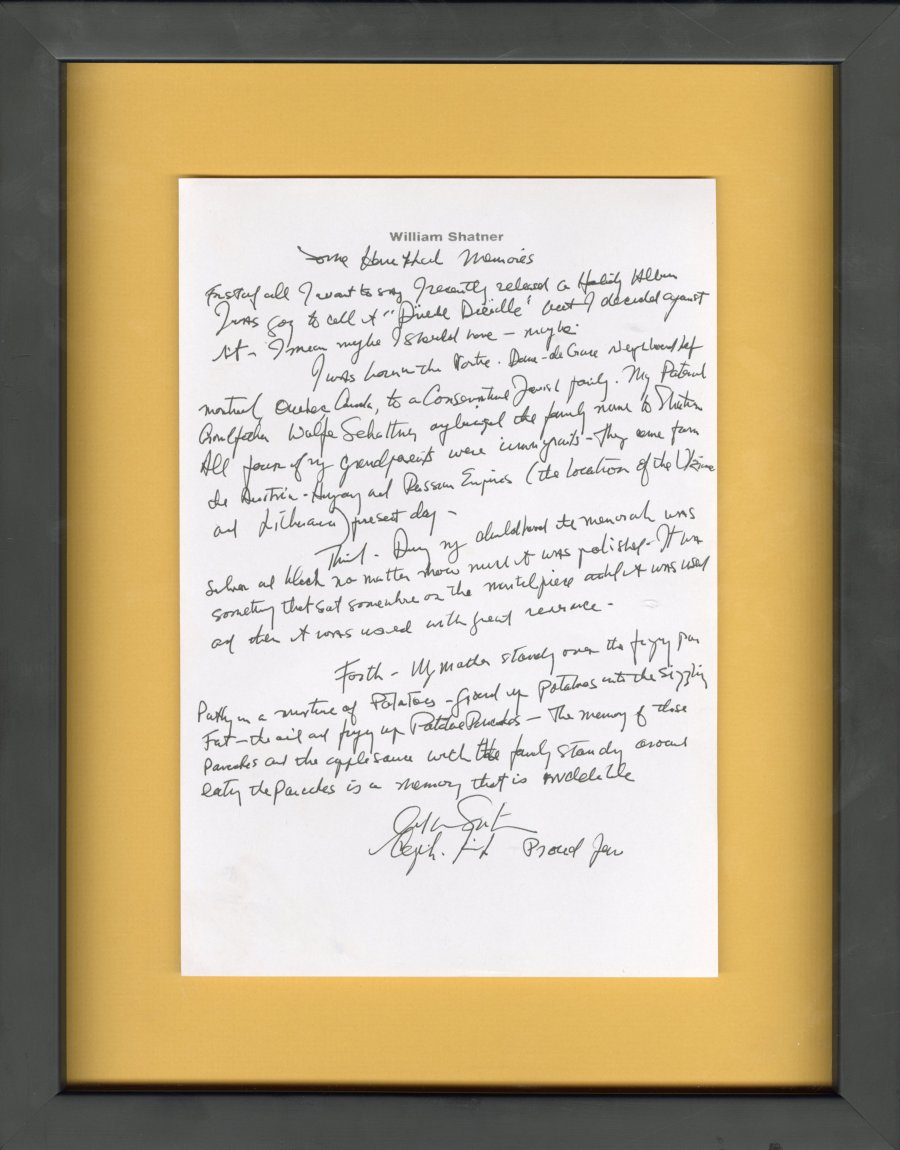 William Shatner
Some Memories
First of all I want to say I recently released a Holiday Album
I was going to call it " but I decided against
it - I mean maybe I should have - maybe.
I was born in the Notre - Dame - de Grace neighborhood of
Montreal Quebec Canada, to a Conservative Jewish family. My Paternal
Grandfather Wolfe Schattner anglicized the family name to Shatner
All four of my grandparents were immigrants - They came from
the Austria - Hungary and Russian Empires (the location of the Ukraine
and Lithuania) present day -
Third - During my childhood the menorah was
silver and black no matter how much it was polished - It was
something that sat somewhere on the mantelpiece until it was used
and then it was used with great reverence -
Forth - My Mother standing over the frying pan
Putting in a mixture of Potatoes - ground up potatoes into the sizzling
Fat - the oil and frying up Potatoe Pancakes - The memory of those
Pancakes and the applesauce with the family standing around
eating the Pancakes is a memory that is indelible
Proud Jew